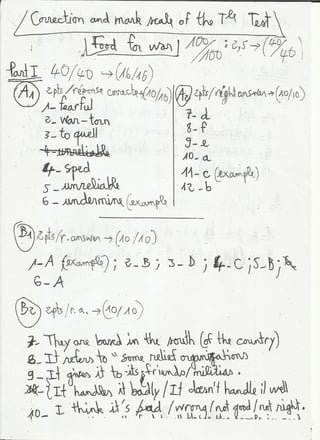 Correction and mark scale of the T<sup>le</sup> Test
Food for war 100/100 ; 2,5 → (40/40)
Part I 40/40 → (16/16)
A1 2pts/réponse correcte → (10/10)
1- fearful
2- war-torn
3- to quell
4- unreliable
4- sped
5- unreliable
6- undermine (example
A2 2pts/right answer → (10/10)
7- d
8- f
9- e
10- a
11- c (example)
12- b
B1 2pts/r.answer → (10/10)
1-A (example) ; 2-B ; 3-D ; 4-C ; 5-B ;
6-A
B2 2pts/r.a. → (10/10)
7- They are based in the south (of the country)
8- It refers to "some relief organizations
9- It gives it to its friends/militias.
{It handles it badly / It doesn't handle it well
10- I think it's bad / wrong / not good / not right.